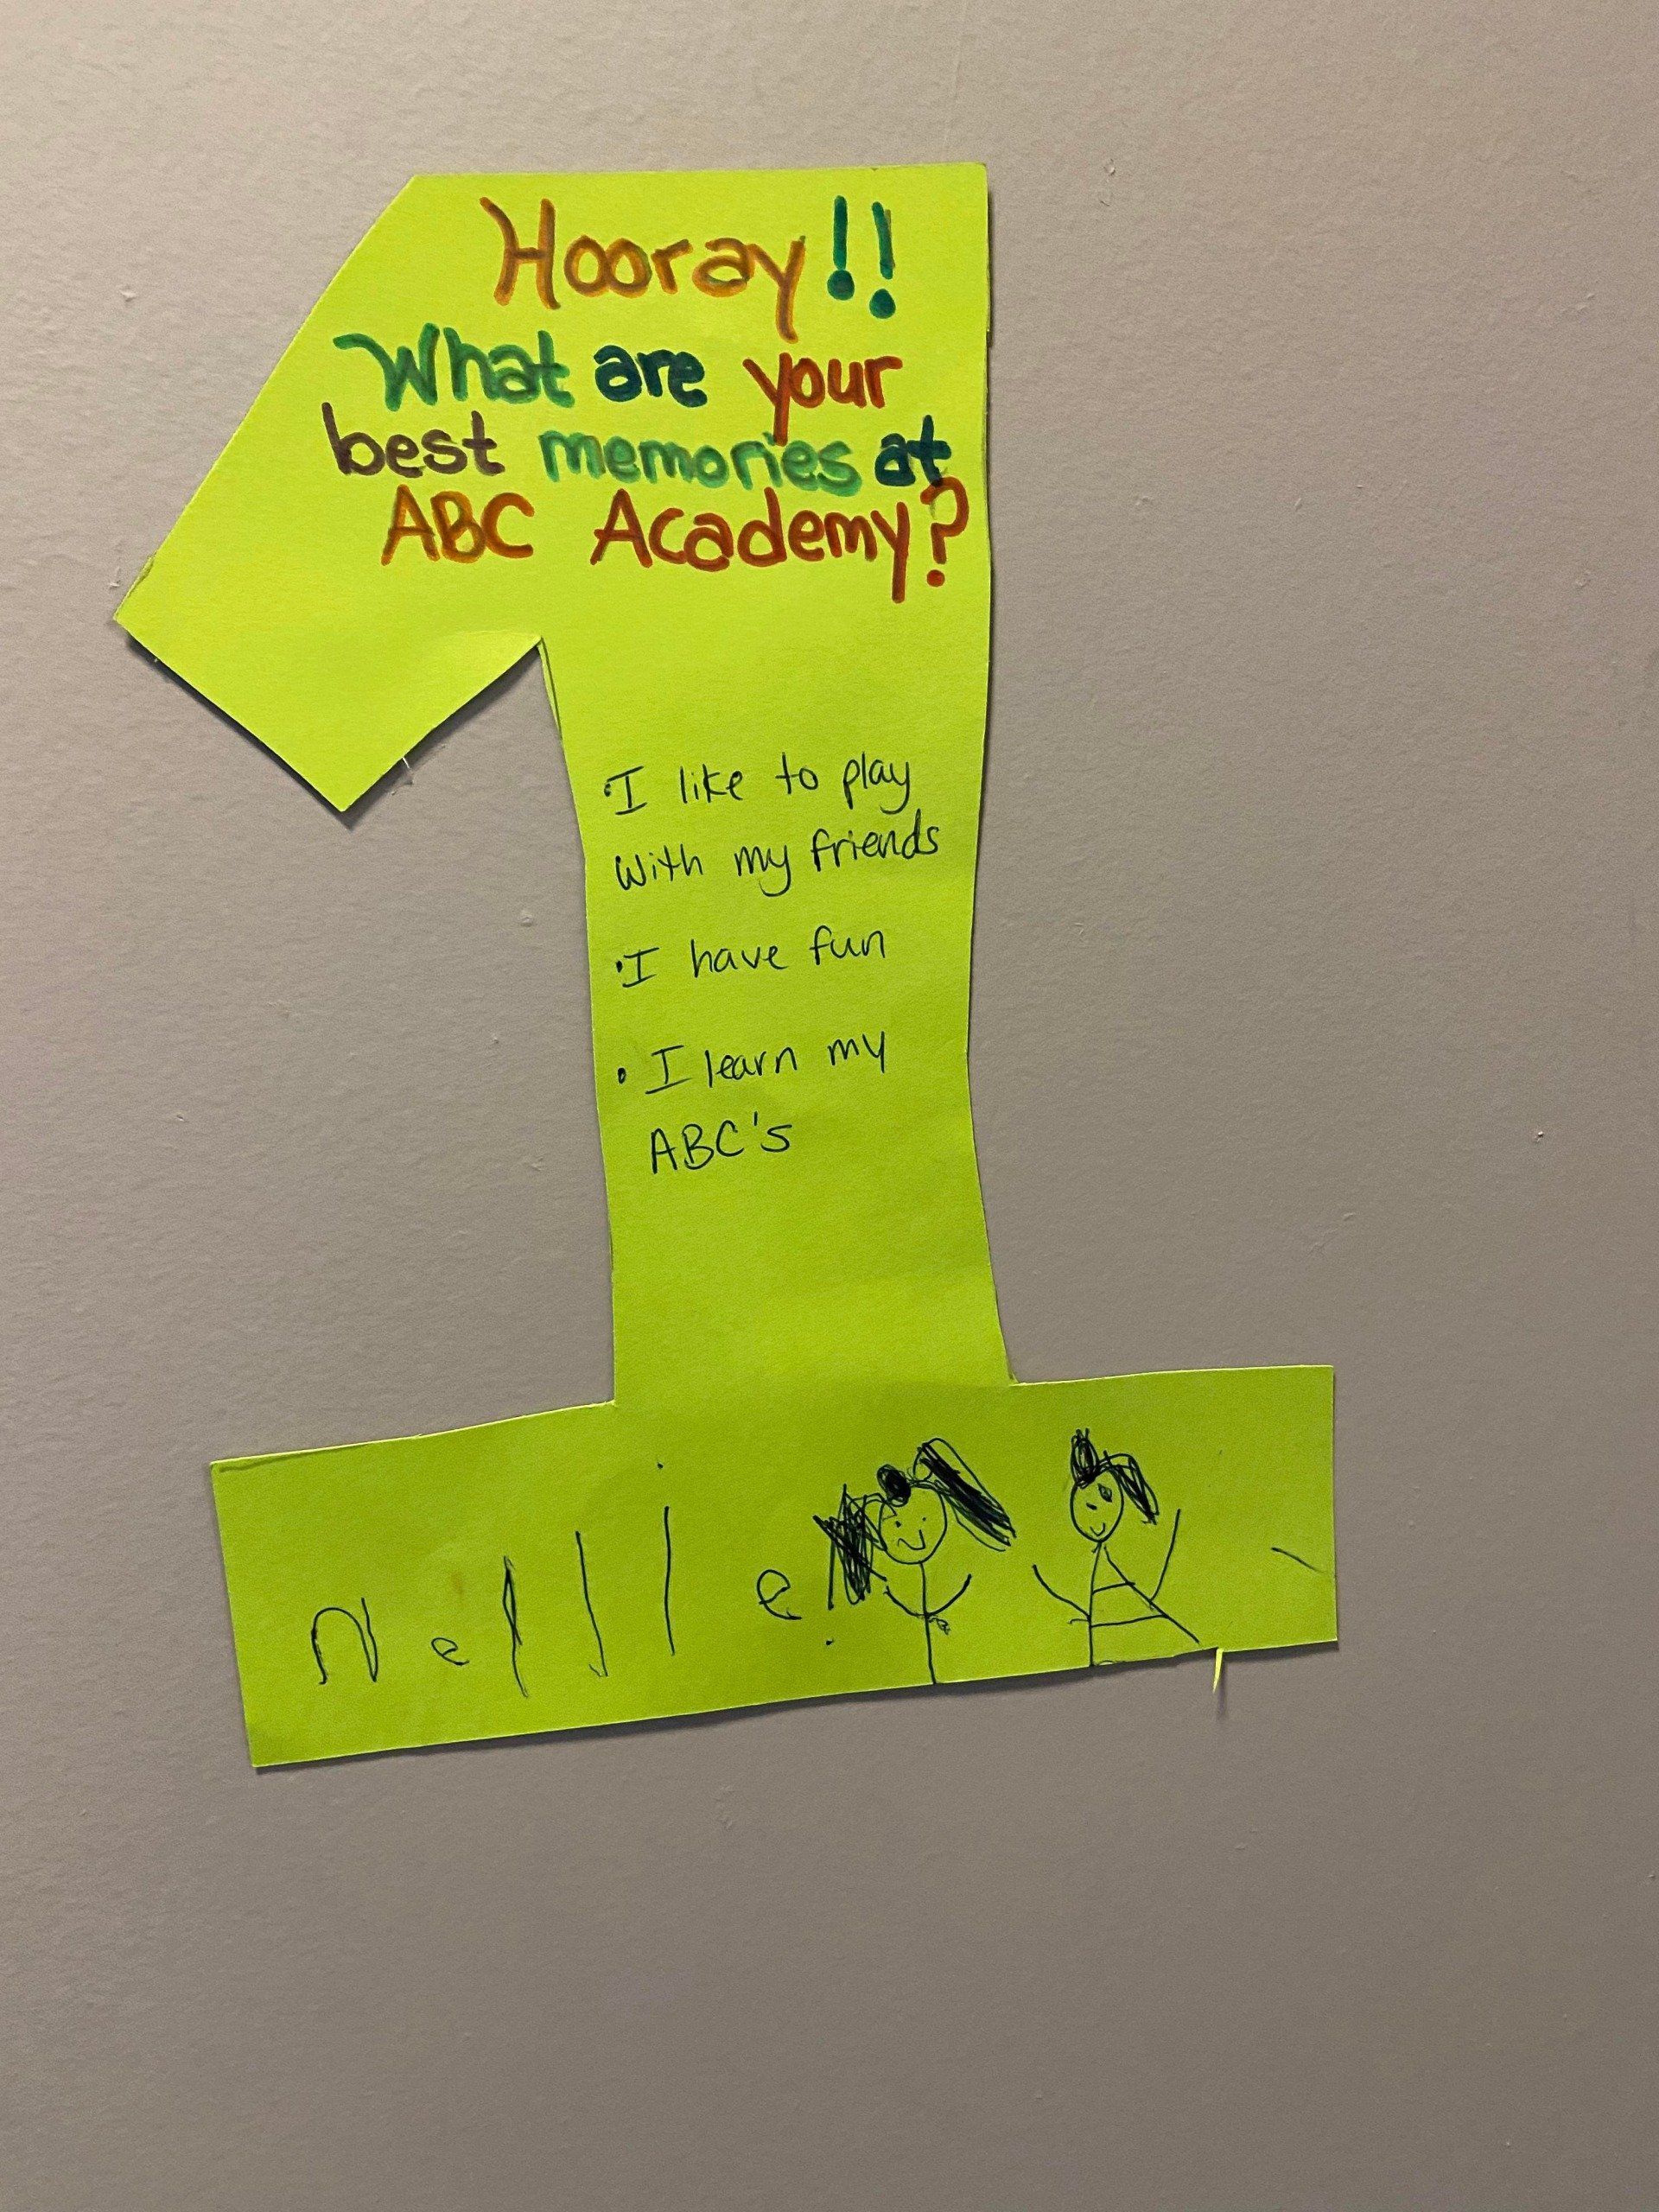 Hooray!!
What are your
best memories at
ABC Academy?
•I like to play
with my friends
•I have fun
• I learn my
ABC's
Nellie